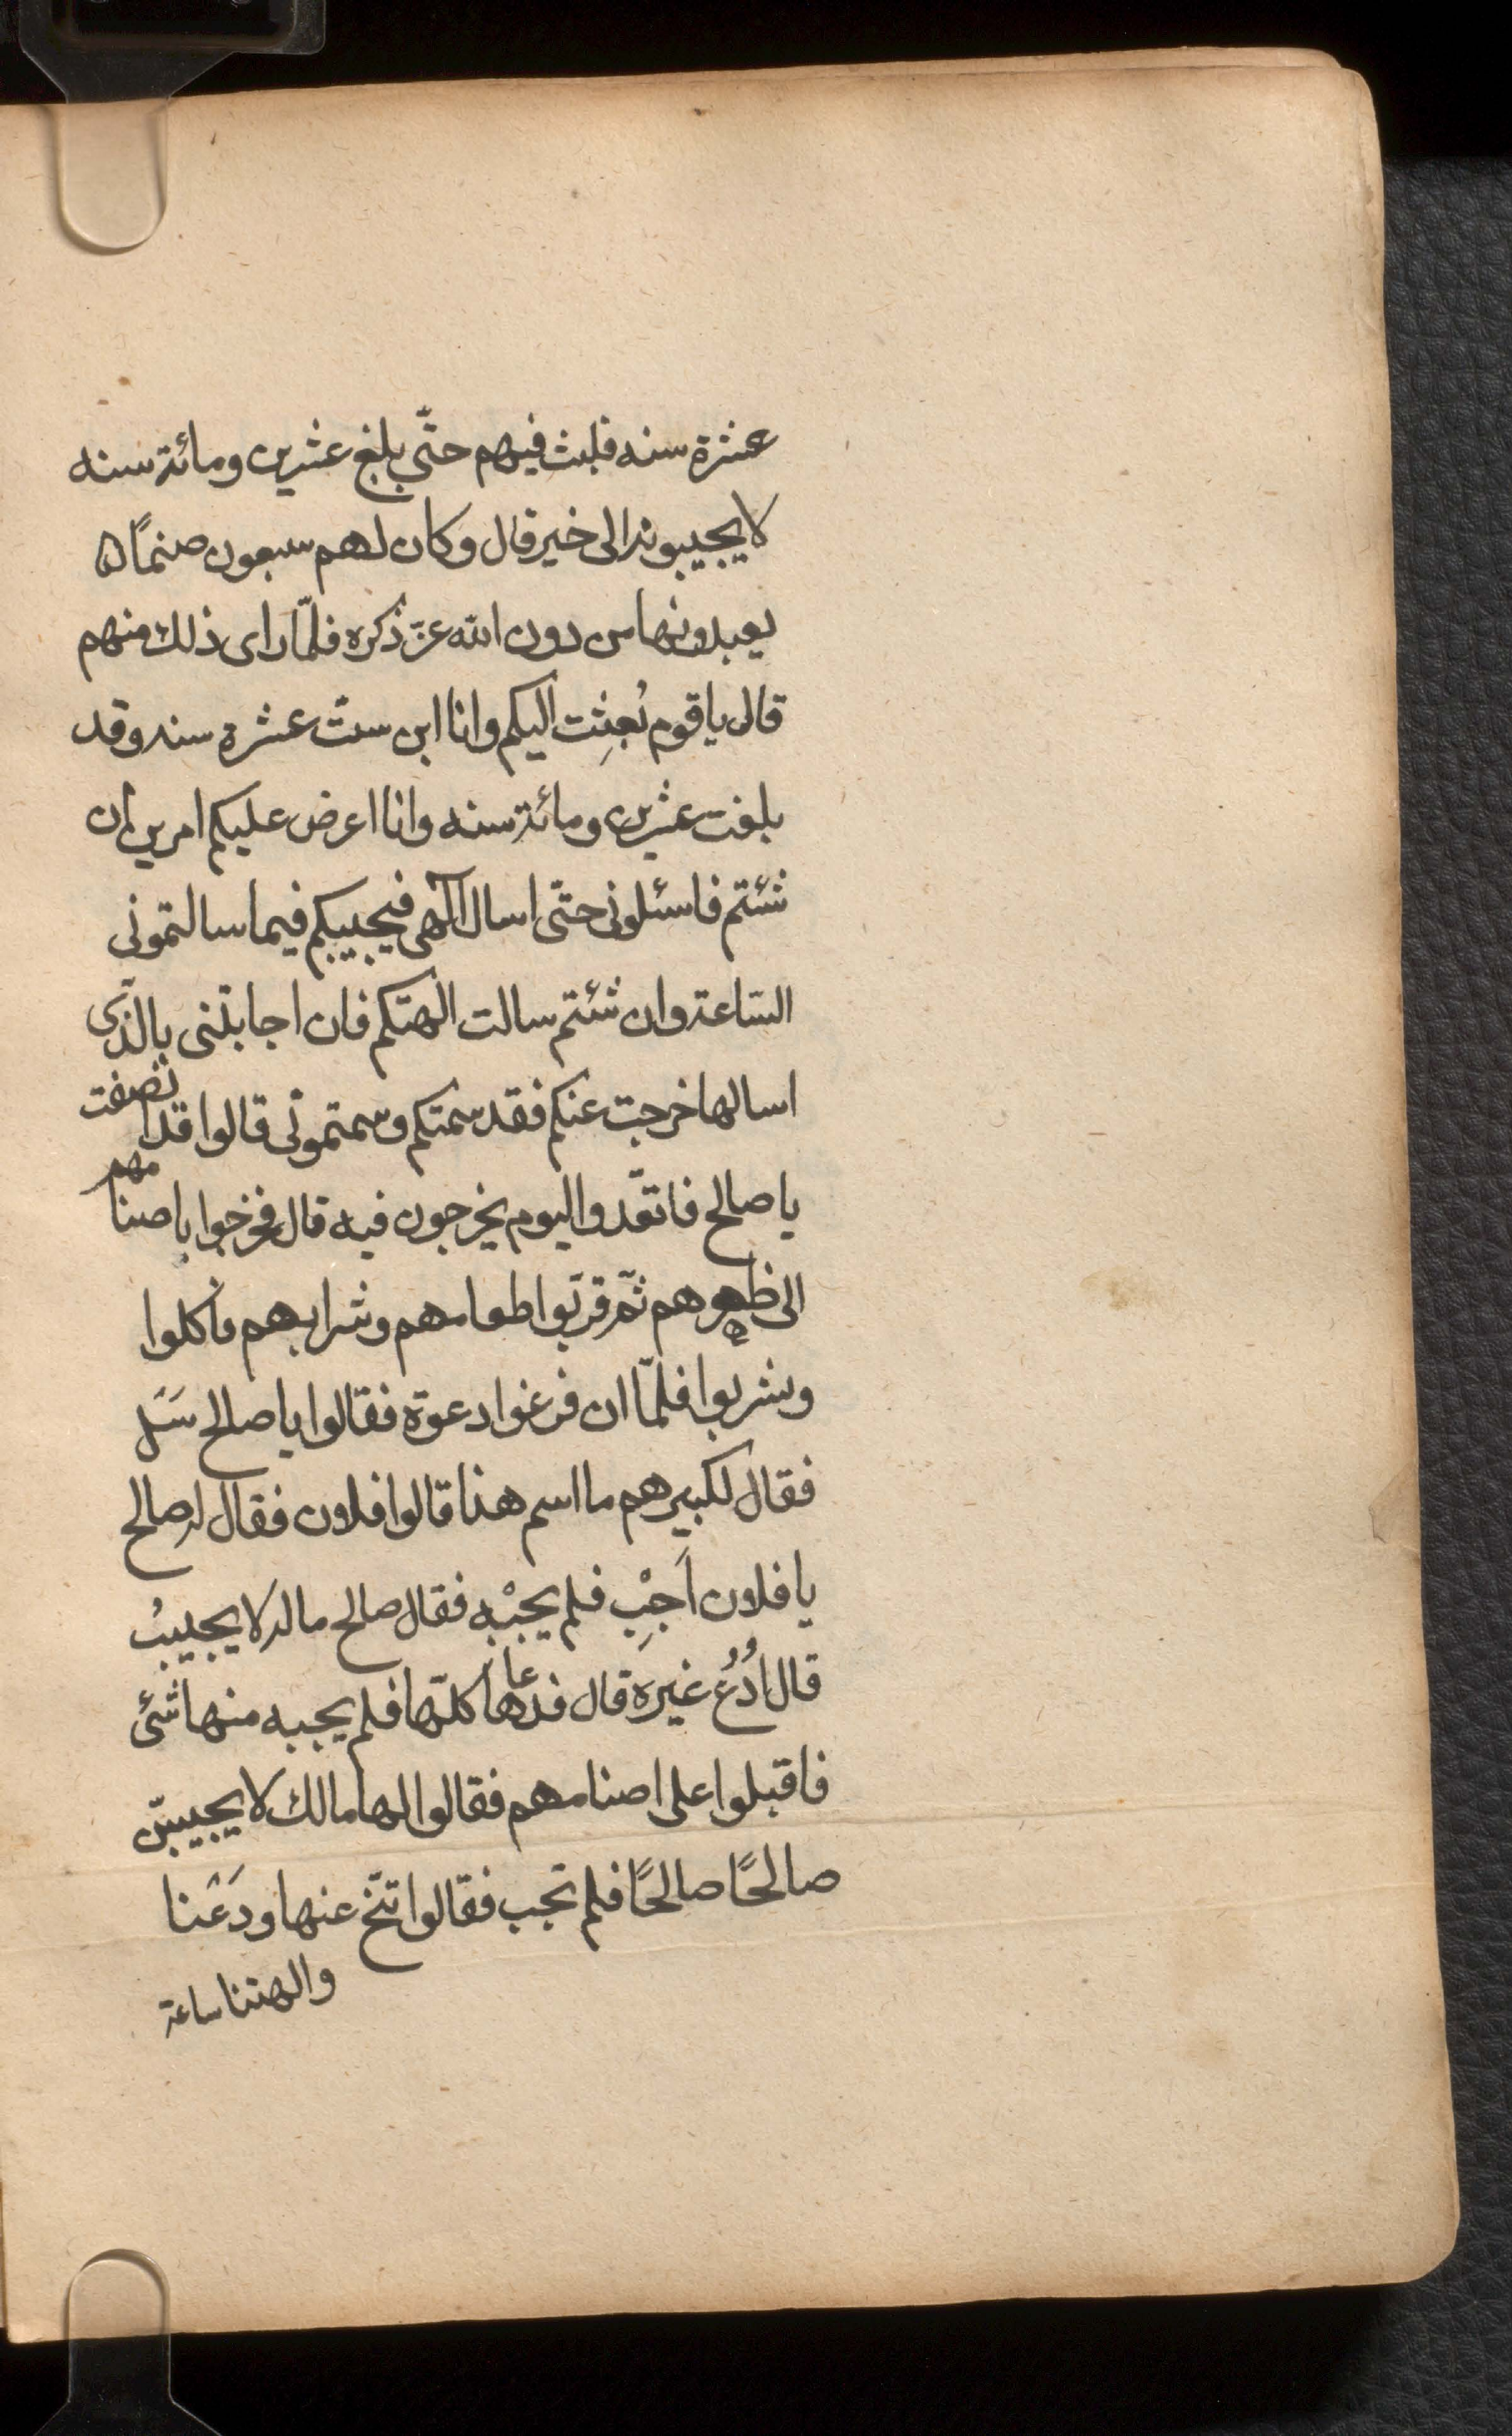 عشرة سنه فلبث فيهم حتّى بلغ عشرين ومائة سنه
لا يجيبونه الى خير قال وكان لهم سبعون صنمًا ۵
يعبدونها من دون الله عزّ ذكره فلمّا راى ذلك منهم
قال يا قوم بُعِثت اليكم وانا ابن ستّ عشرة سنه وقد
بلغت عشرين ومائة سنه وانا اعرض عليكم امرين ان
شئتم فاسئلونى حتّى اسال الٓهى فيجيبكم فيما سالتمونى
السّاعة وان شئتم سالت الهتكم فان اجابتنى بالّذى
اسالها خرجت عنكم فقد سمتكم وسمتمونى قالوا قد انصفت
يا صالح فاتعّدوا اليوم يخرجون فيه قال فخرجوا باصنامهم
الى ظهورهم ثمّ قربّوا طعامهم وشرابهم فاكلوا
وشربوا فلمّا ان فرغوا دعوة فقالوا يا صالح سَل
فقال لكبيرهم ما اسم هذا قالوا فلان فقال له صالح
يا فلان اَجِبْ فلم يجبْه فقال صالح ماله لا يجيبُ
قال اُدْعُ غيره قال فدعاها كلّها فلم يجبه منها شئ
فاقبلوا على اصنامهم فقالوا لها مالك لا يجيبنّ
صالحًا صالحًا فلم تجب فقالوا تنّح عنها ودَعْنا
والهتنا ساعة